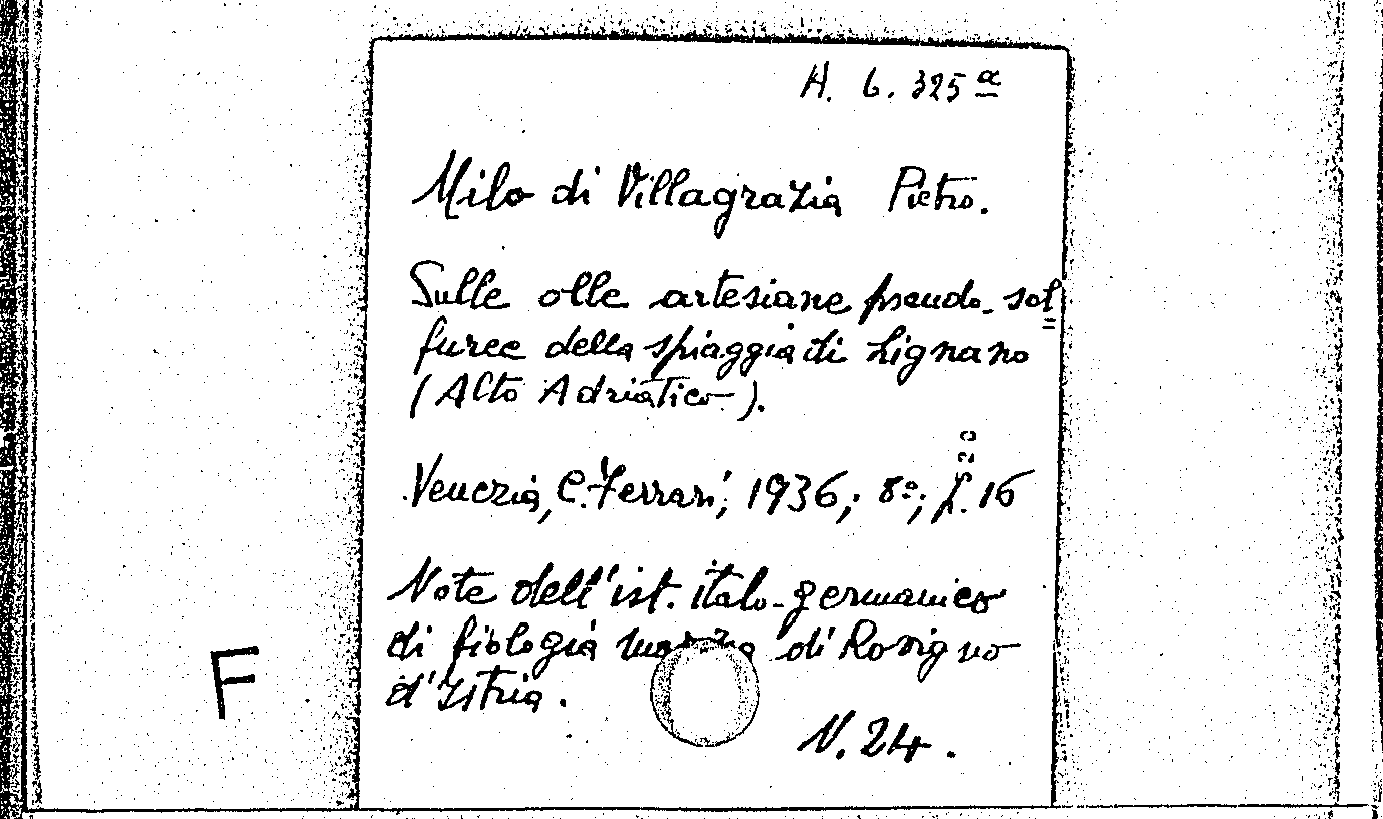 H. 6. 325 a
Milo di Villagrazia Pietro.
Sulle olle artesiane pseudo-sol=
furee della spiaggia di Lignano
(Alto Adriatico).
Venezia, C. Ferrari, 1936, 8º, p. 16
Note dell'ist. italo-germanico
di fiologia di Rovigno
d'Istria.
N. 24.
F